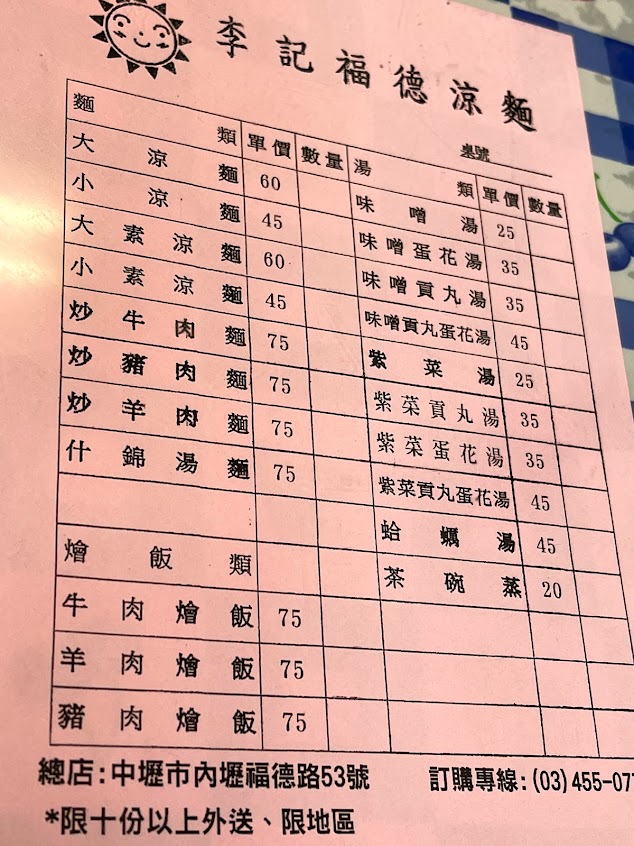 李記福德涼麵
桌號
麵類 單價 數量 湯類 單價 數量
大涼麵 60 味噌湯 25
小涼麵 45 味噌蛋花湯 35
大素涼麵 60 味噌貢丸湯 35
小素涼麵 45 味噌貢丸蛋花湯 45
炒牛肉麵 75 紫菜湯 25
炒豬肉麵 75 紫菜貢丸湯 35
炒羊肉麵 75 紫菜蛋花湯 35
什錦湯麵 75 紫菜貢丸蛋花湯 45
蛤蠣湯 45
燴飯類 茶碗蒸 20
牛肉燴飯 75
羊肉燴飯 75
豬肉燴飯 75
總店:中壢市內壢福德路53號 訂購專線:(03)455-07
*限十份以上外送、限地區